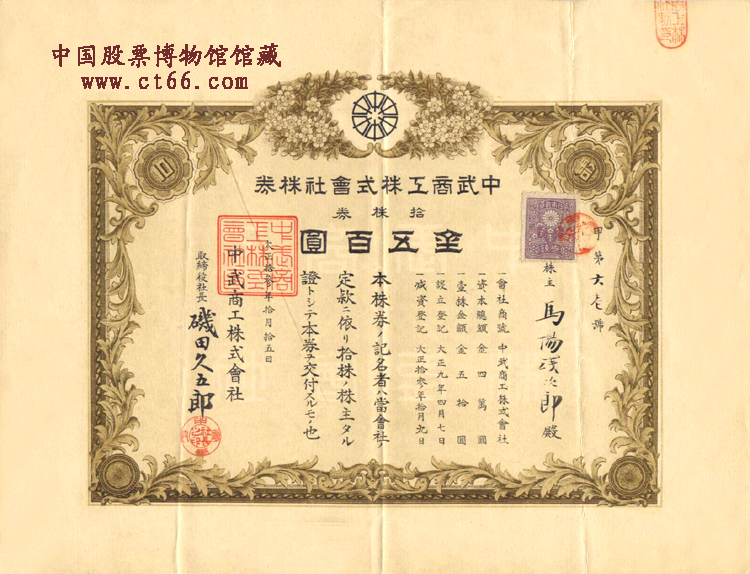 中国股票博物馆馆藏
www.ct66.com
中武商工株式會社株券
拾株券
金五百圓
甲第六壱號
株主
殿
一會社商號 中武商工株式會社
一資本總額 金四萬圓
一壹株金額 金五拾圓
一設立登記 大正九年四月七日
一減資登記 大正拾参年拾月九日
本株券ノ記名者ハ當會社ノ
定款ニ依リ拾株ノ株主タル
證トシテ本券ヲ交付スルモノ也
大正拾参年拾月拾五日
中武商工株式會社
取締役社長
磯田久五郎